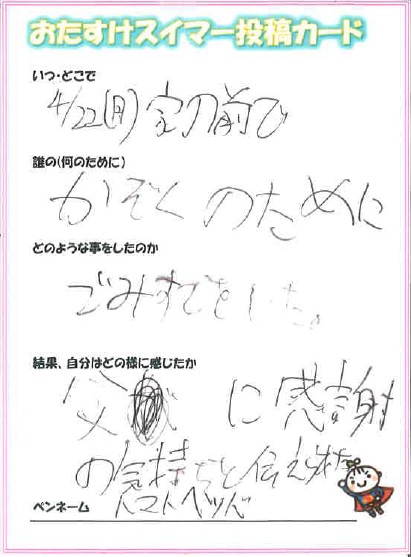 おたすけスイマー投稿カード
いつ・どこで
4/22(月)家の前で
誰の(何のために)
かぞくのために
どのような事をしたのか
ごみすてをした。
結果、自分はどの様に感じたか
父に感謝
の気持ちを伝え
ペンネーム